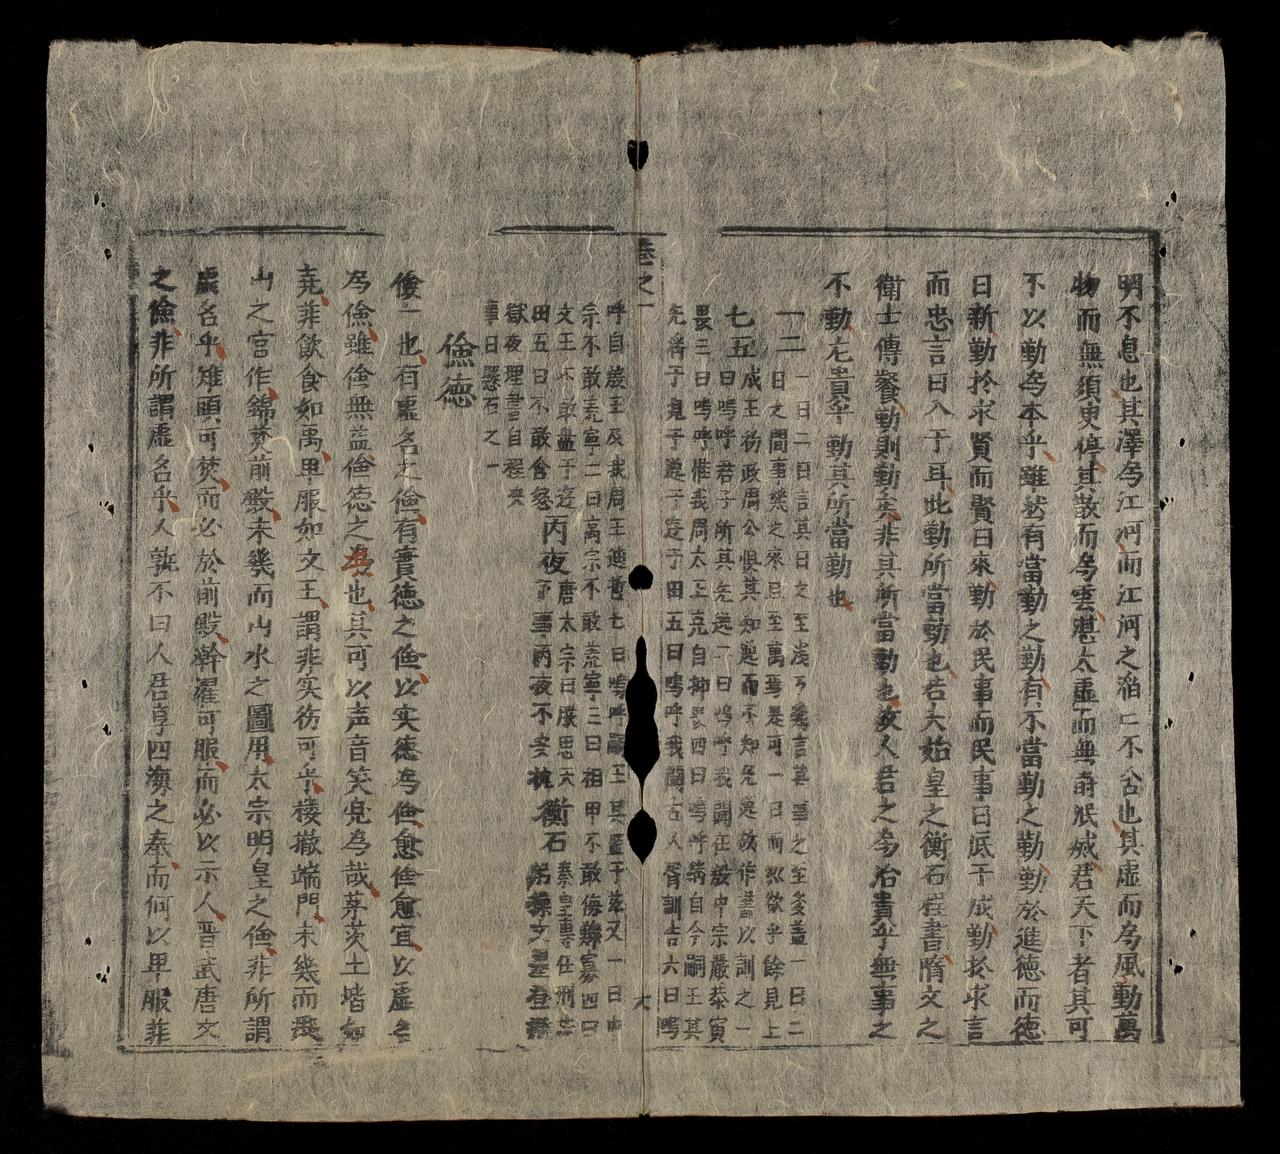 明不息也其澤為江河而江河之滔亡不舍也其虛而為風動萬
物而無須臾停其散而為雲湛太虛而無 君天下者其可
不以勤為本乎雖然有當勤之勤有不當勤之勤勤於進德而德
日新勤於求賢而賢日來勤於民事而民事日底于成勤於求言
而忠言日入于耳此勤所當勤也若夫始皇之衡石程書隋文之
衛士傳餐勤則勤矣非其所當勤也故人君之為治貴乎無事之
不動尤貴乎動其所當勤也
一二 一日二日言其日之至淺万幾言其事之至多蓋一日二
日之間事幾之來且至萬焉是可一日而縱欲乎餘見上
七五 成王初政周公懼其知逸而不知先逸故作書以訓之一
曰嗚呼君子所其无逸二曰嗚呼我聞在昔中宗嚴恭寅
畏三曰嗚呼惟我周太王克自抑畏四曰嗚呼繼自今嗣王其
无淫于觀于逸于遊于田五曰嗚呼我聞古人胥訓告六曰嗚
卷之一 六
呼自殷王及我周王迪哲七曰嗚呼嗣王其監于茲又一曰中
宗不敢荒寧二曰高宗不敢荒寧三曰祖甲不敢侮鰥寡四曰
文王不敢盤于遊
田五曰不敢含怒 丙夜 唐太宗曰朕思天
下事丙夜不安枕 衡石 秦皇專任刑法
獄夜理書自程決
事日懸石之一
儉德
儉一也有虛名之儉有實德之儉以实德為儉愈儉愈宜以虛名
為儉雖儉無益儉德之為也其可以声音笑皃為哉茅茨土堦如
堯菲飲食如禹卑服如文王謂非实德可乎棱撤端門未幾而
山之宮作錦焚前殿未幾而山水之圖用太宗明皇之儉非所謂
虛名乎雉頭可焚而必於前殿幹濯可服而必以示人晋武唐文
之儉非所謂虛名乎人孰不曰人君享四海之奉而何以卑服菲